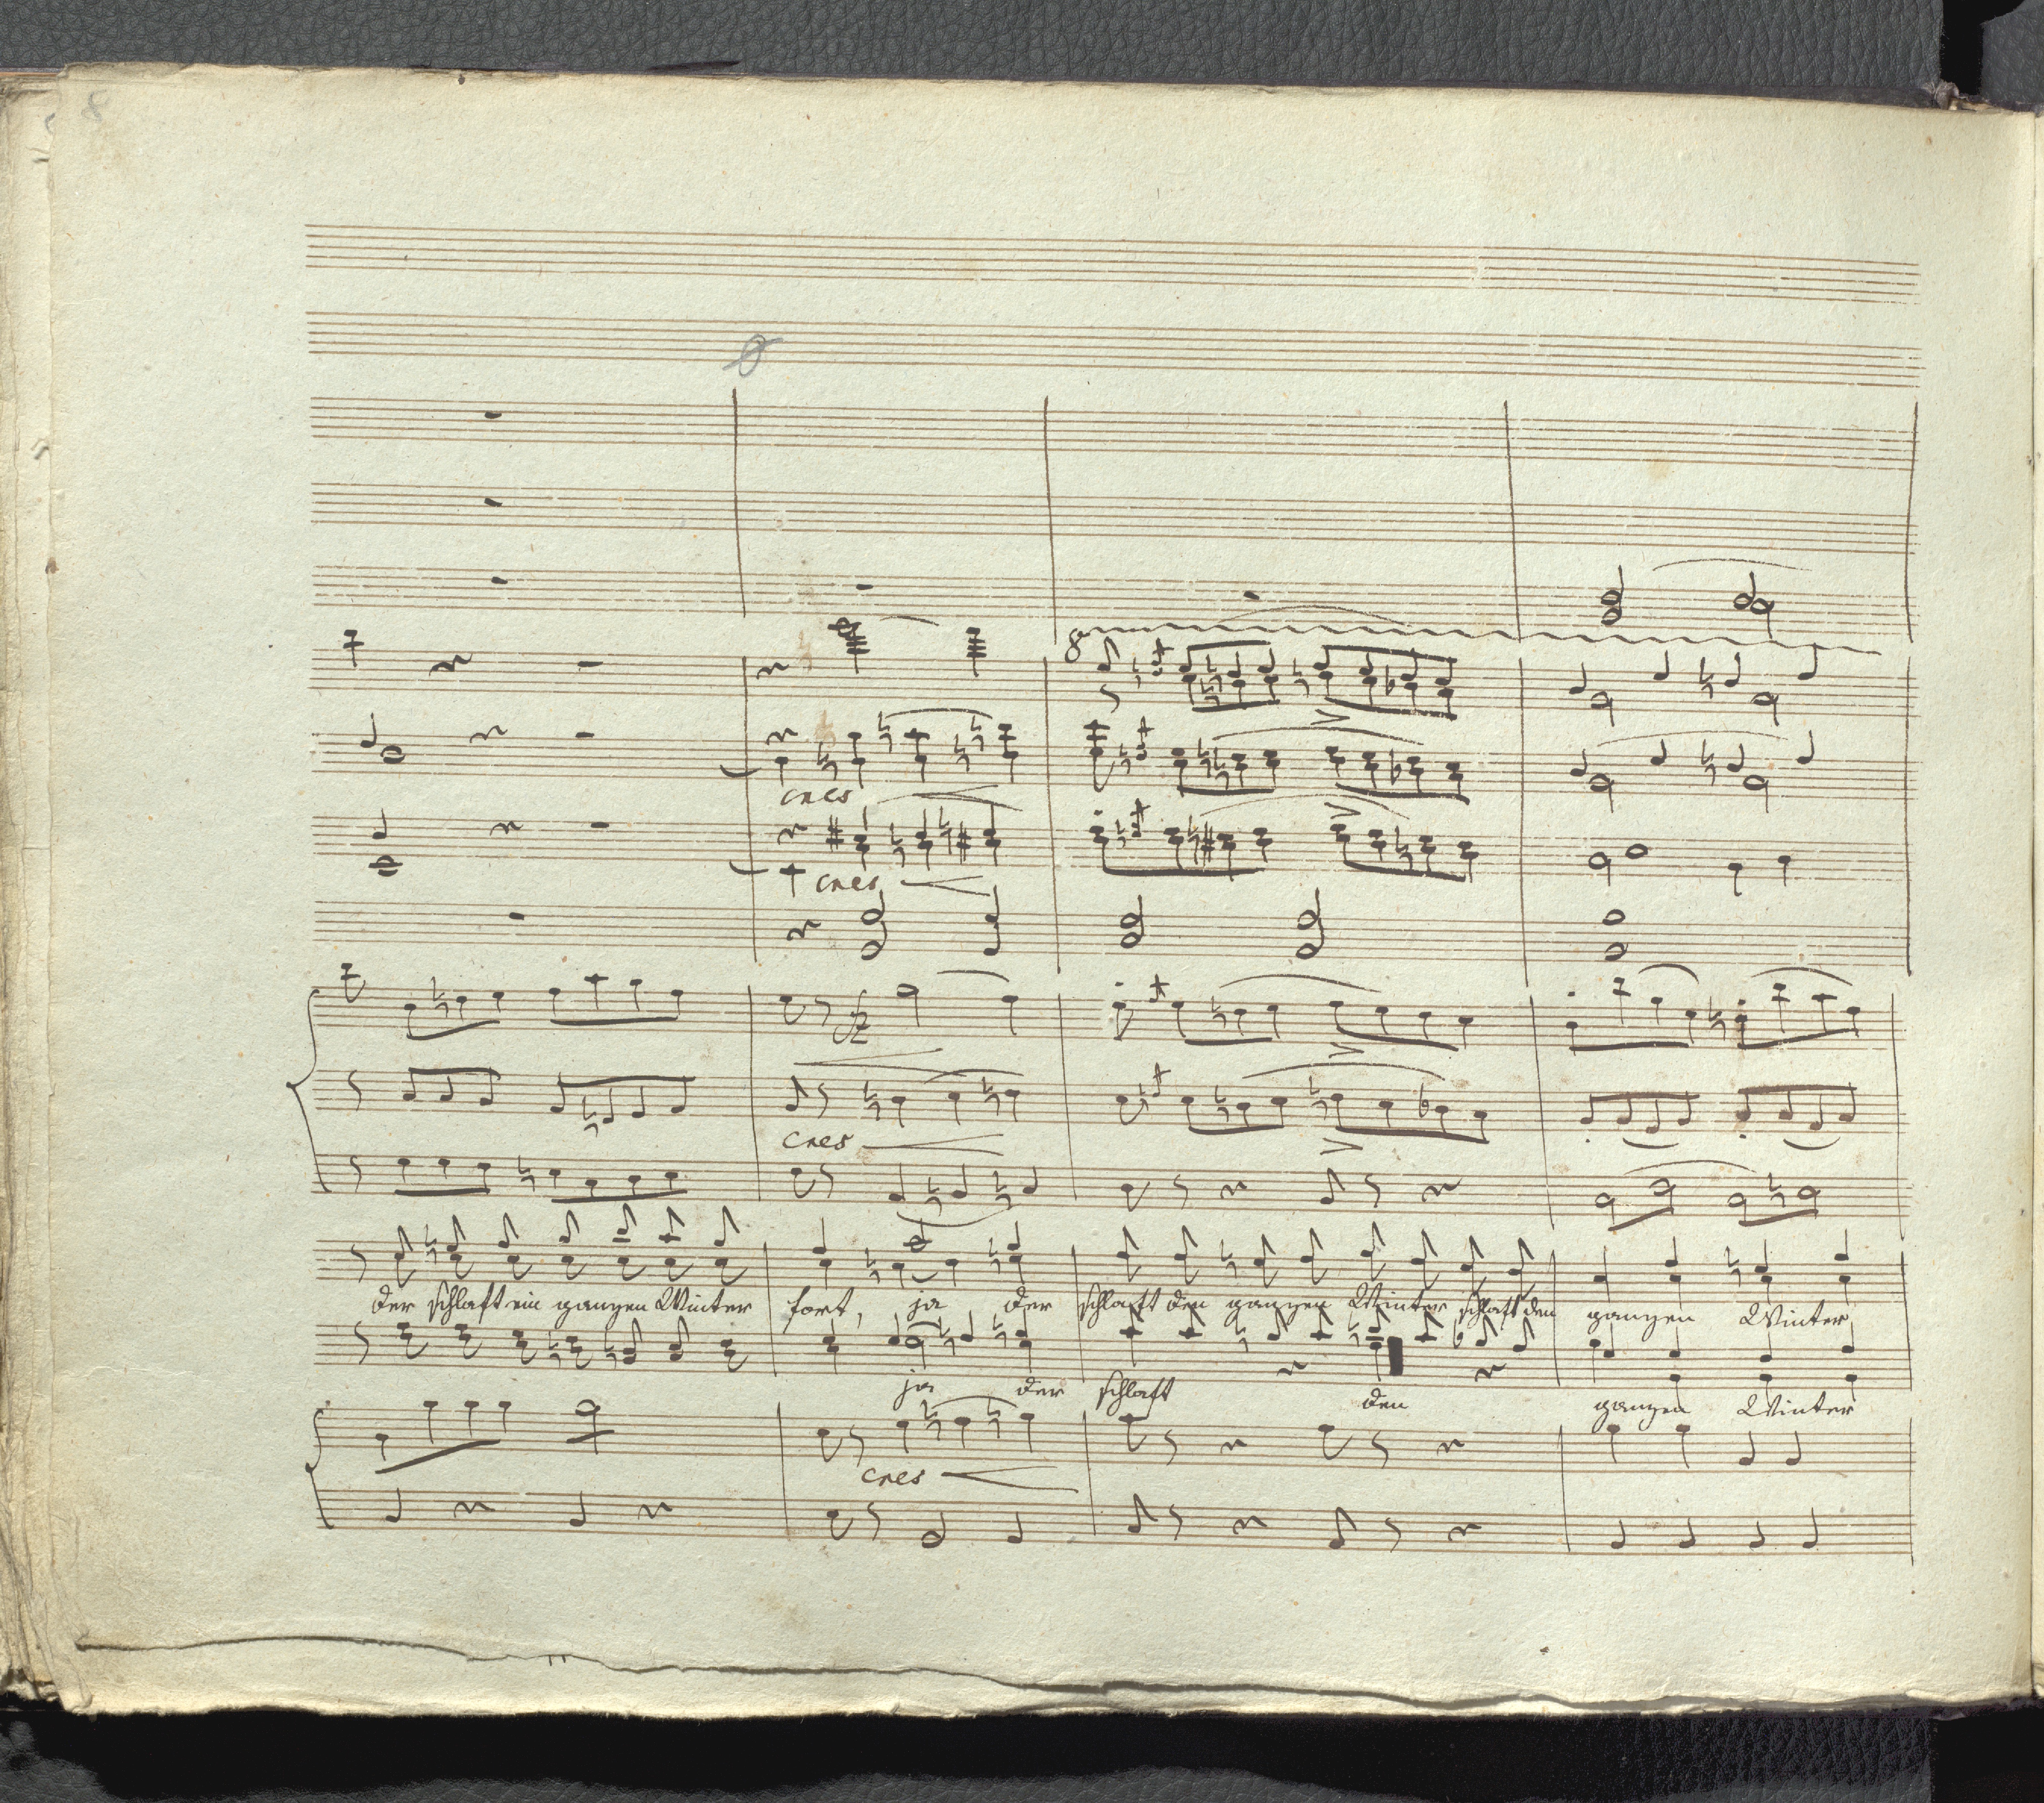 8
8
cres
cres
fz
cres
der schlaft ein ganzen Winter fort, ja der schlaft den ganzen Winter schlaft den ganzen Winter
ja der schlaft den ganzen Winter
cres